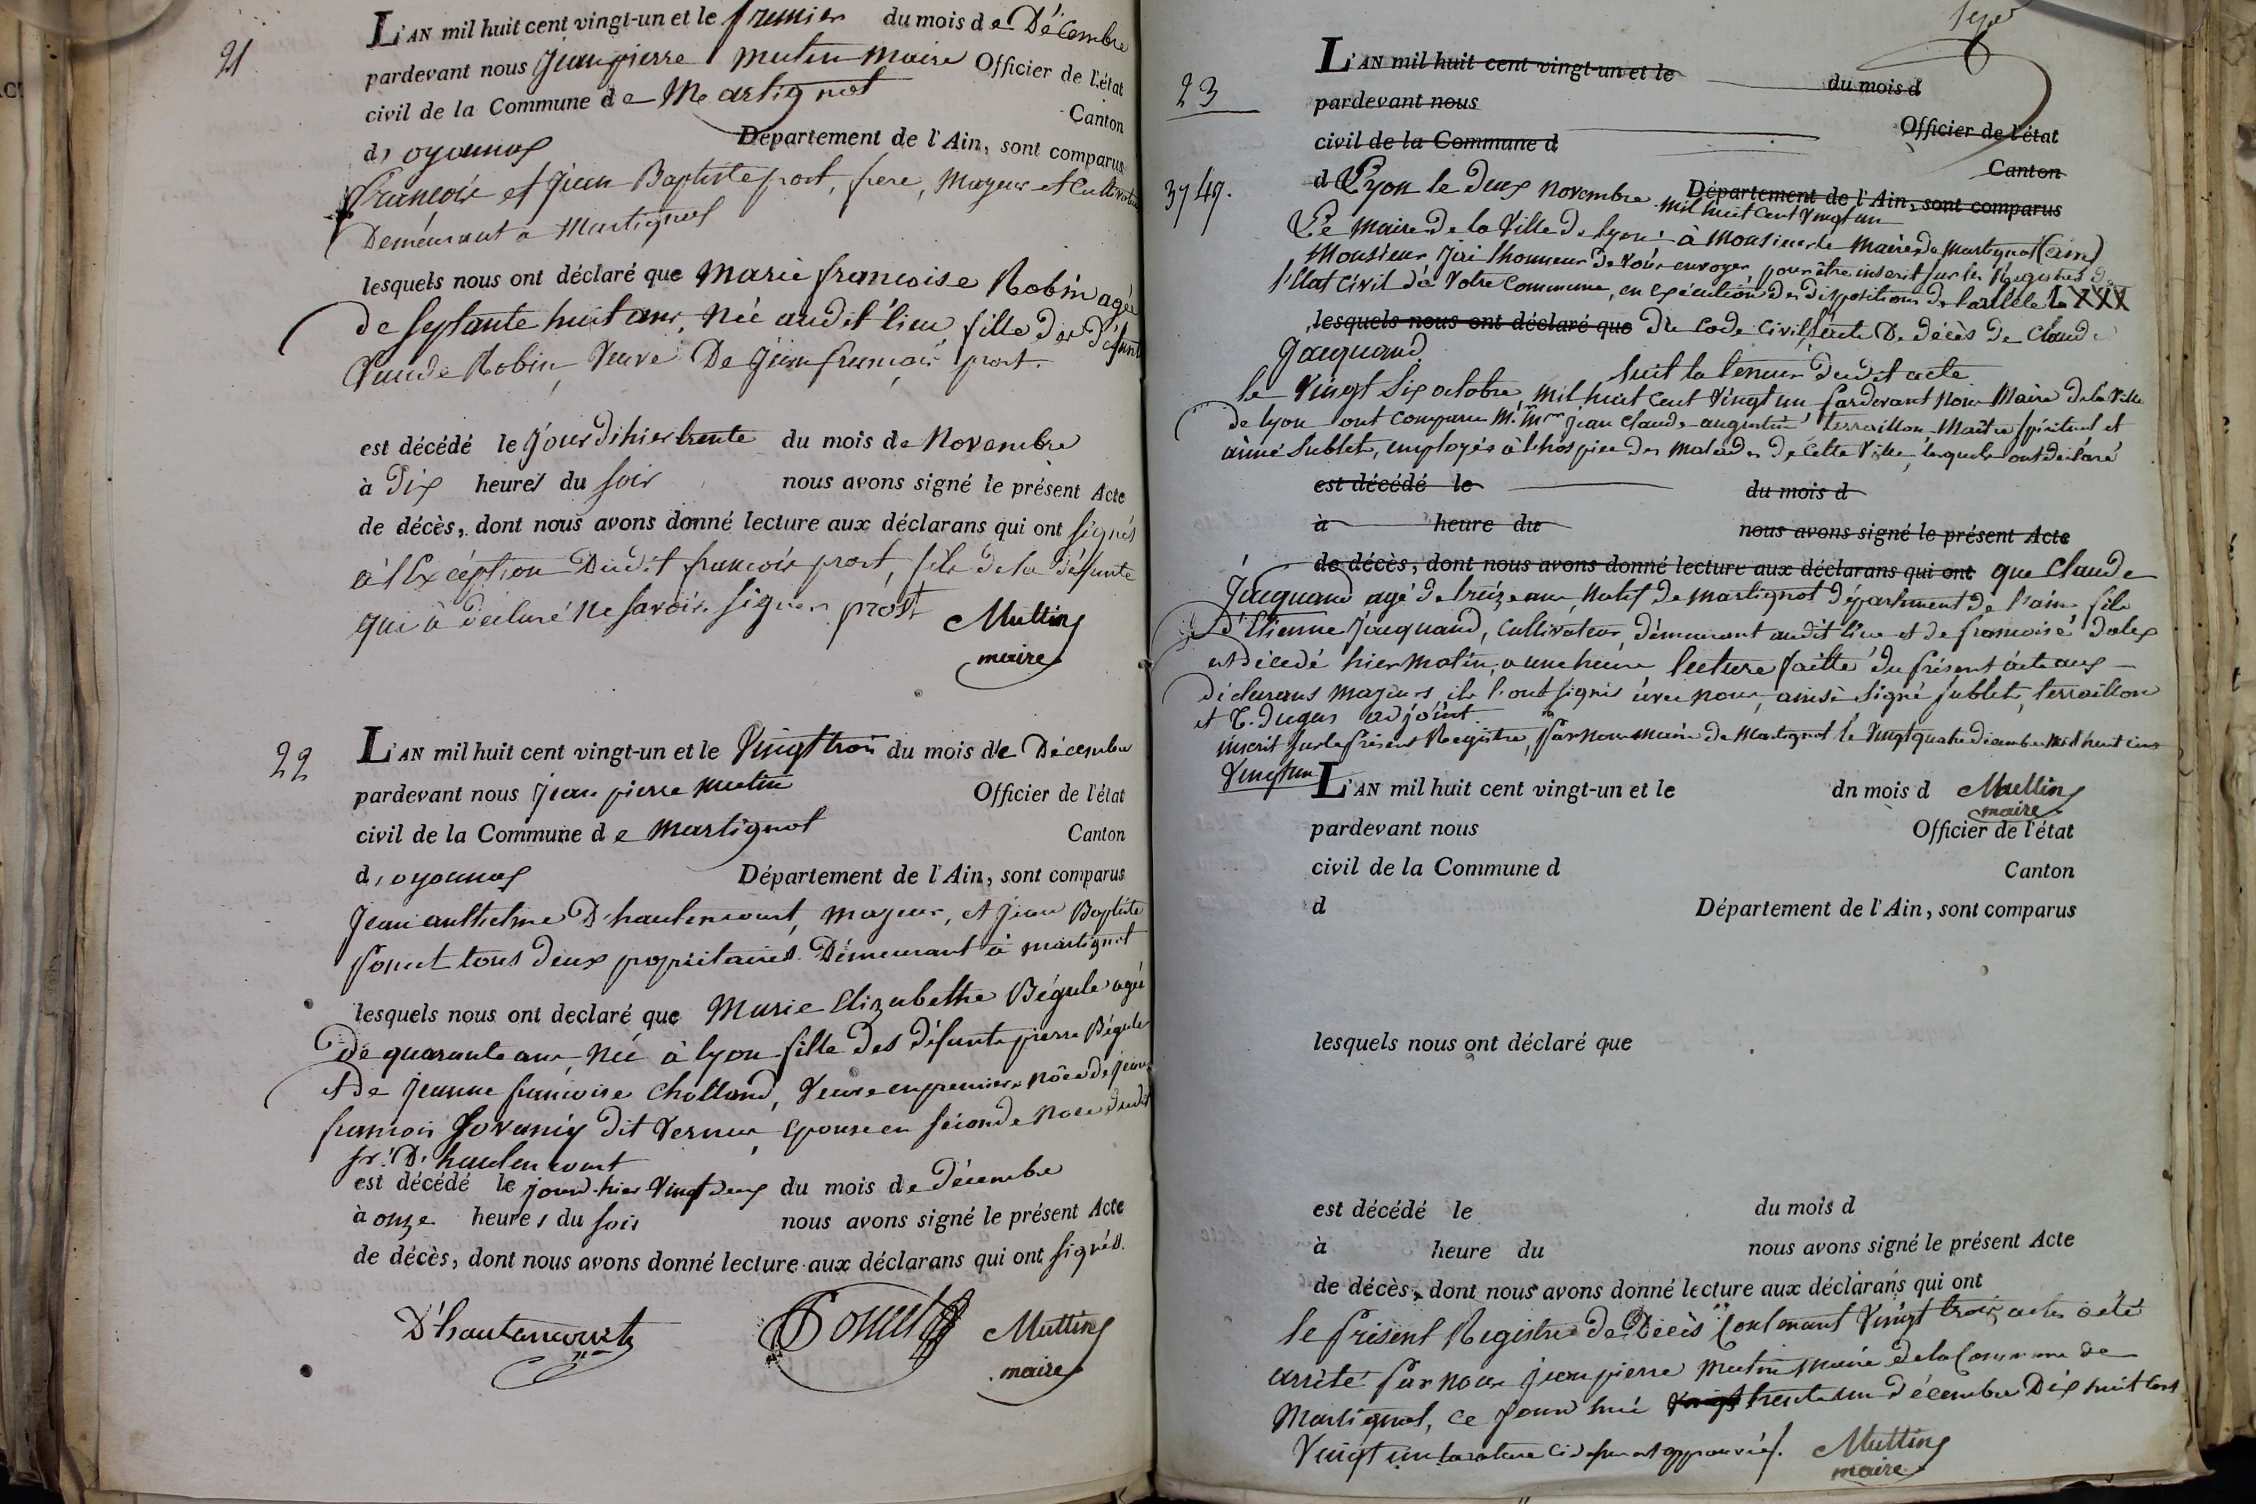 21
L'AN mil huit cent vingt-un et le premier du mois de Décembre
pardevant nous Jean pierre mutin maire Officier de l'état
civil de la Commune de Martignat Canton
d'oyonnax Département de l'Ain, sont comparus
françois et Jean Baptiste prost, frere, Majeurs et Cultivateurs
Demeurant a Martignat
lesquels nous ont déclaré que Marie françoise Robin agée
de septante huit ans, Née audit lieu fille des défunt
Claude Robin, Veuve De Jean françois prost.
est décédé le jourd'hier trente du mois de Novembre
à dix heures du soir nous avons signé le présent Acte
de décès, dont nous avons donné lecture aux déclarans qui ont signés
à l'Exception Dudit françois prost, fils de la défunte
qui à déclaré Ne savoir signer prost Muttin
maire
22
L'AN mil huit cent vingt-un et le Vingt trois du mois de Décembre
pardevant nous Jean pierre mutin Officier de l'état
civil de la Commune de Martignat Canton
d'oyonnax Département de l'Ain, sont comparus
Jean anthelme D'hautencourt, majeur, et Jean Baptiste
Sonnet tous deux propriétaires Demeurant à martignat
lesquels nous ont declaré que Marie Elizabethe Bégule agée
De quarante ans, Née à lyon fille des défunts pierre Bégule
et De Jeanne francoise Chattand, Veuve en premiere nôce de jean
francois Jovaniz dit Vernus, Epouse en séconde Noce dudit
sr. D'hautencourt
est décédé le jourd-hier Vingt deux du mois de Décembre
à onze heures du soir nous avons signé le présent Acte
de décès, dont nous avons donné lecture aux déclarans qui ont signés.
D'hautencourt Sonnet Muttin
maire
23
L'AN mil huit cent vingt-un et le du mois d
pardevant nous Officier de l'état
civil de la Commune d Canton
3747.
d Lyon le deux Novembre Département de l'Ain, sont comparus
mil huit cent Vingt un
Le maire de la Ville de Lyon à Monsieur le Maire de Martignat (ain)
Monsieur j'ai l'honneur de Vous envoyer, pour être inscrit sur les Régistres de
l'Etat Civil de Votre Commune, en exécution des dispositions de l'article LXXX
lesquels nous ont déclaré que du Code Civil, l'acte De décès de Claude
Jacquand.
Suit la teneur dudit acte
le Vingt six octobre, mil huit cent Vingt un pardevant Nous Maire de la Ville
de lyon ont comparu M.rs jean Claude augustin terraillon Maitre spirituel et
aimé Sublet, employés à l'hospice des Malades de cette Ville, lesquels ont déclaré
est décédé le du mois d
à heure du nous avons signé le présent Acte
de décès, dont nous avons donné lecture aux déclarans qui ont que Claude
Jacquand agé de treize ans, Natif de Martignat départment de l'ain fils
d'Etienne Jacquand, Cultivateur, démeurant audit lieu et de francoise dalex
est Décedé hier Matin, a une heure lecture faitte du present acte aux
déclarans Majeurs, ils l'ont signé avec nous, ainsi signé Sublet, terraillon
et C. Dugas adjoint.
inscrit sur le présent Registre, Par nous maire de Martignat le Vingt quatre décembre Mil huit cent
Vingt un
L'AN mil huit cent vingt-un et le dn mois d Muttin
maire
pardevant nous Officier de l'état
civil de la Commune d Canton
d Département de l'Ain, sont comparus
lesquels nous ont déclaré que
est décédé le du mois d
à heure du nous avons signé le présent Acte
de décès, dont nous avons donné lecture aux déclarans qui ont
le présent Registre de Décès Contenant Vingt trois actes a été
arrêté par nous jean pierre Mutin Maire de la Commune de
Martignat, ce jourd'hui trente un décembre Dix huit cent
Vingt un la rature ci dessus est approuvée. Muttin
maire